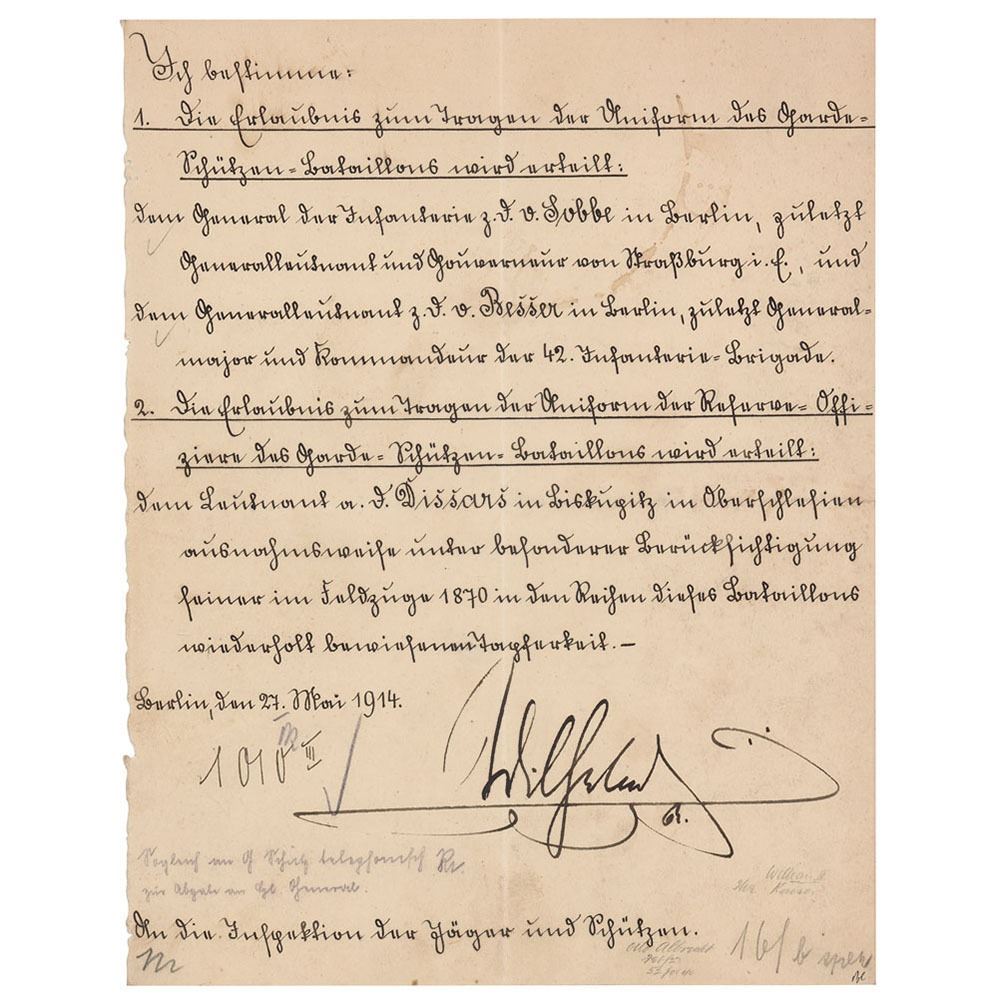 Ich bestimme:
1. Die Erlaubnis zum Tragen der Uniform des Garde-
Schützen-Bataillons wird erteilt:
dem General der Infanterie z. D. v. Sobbe in Berlin, zuletzt
Generalleutnant und Gouverneur von Straßburg i. E., und
dem Generalleutnant z. D. v. Besser in Berlin, zuletzt General-
major und Kommandeur der 42. Infanterie-Brigade.
2. Die Erlaubnis zum Tragen der Uniform der Reserve-Offi-
ziere des Garde-Schützen-Bataillons wird erteilt:
dem Leutnant a. D. Dissars in Biskupitz in Oberschlesien
ausnahmsweise unter besonderer Berücksichtigung
seiner im Feldzuge 1870 in den Reihen dieses Bataillons
wiederholt bewiesenen Tapferkeit.–
Berlin, den 27. Mai 1914.
1010 III
Wilhelm
R.
Sogleich an G Schütz telephonisch
zur Abgabe an General.
An die Inspektion der Jäger und Schützen.